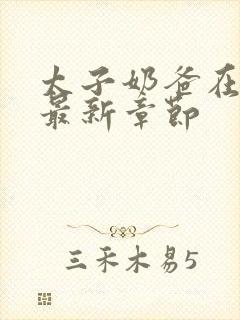 太子奶爸在
最新章节
三禾木易5